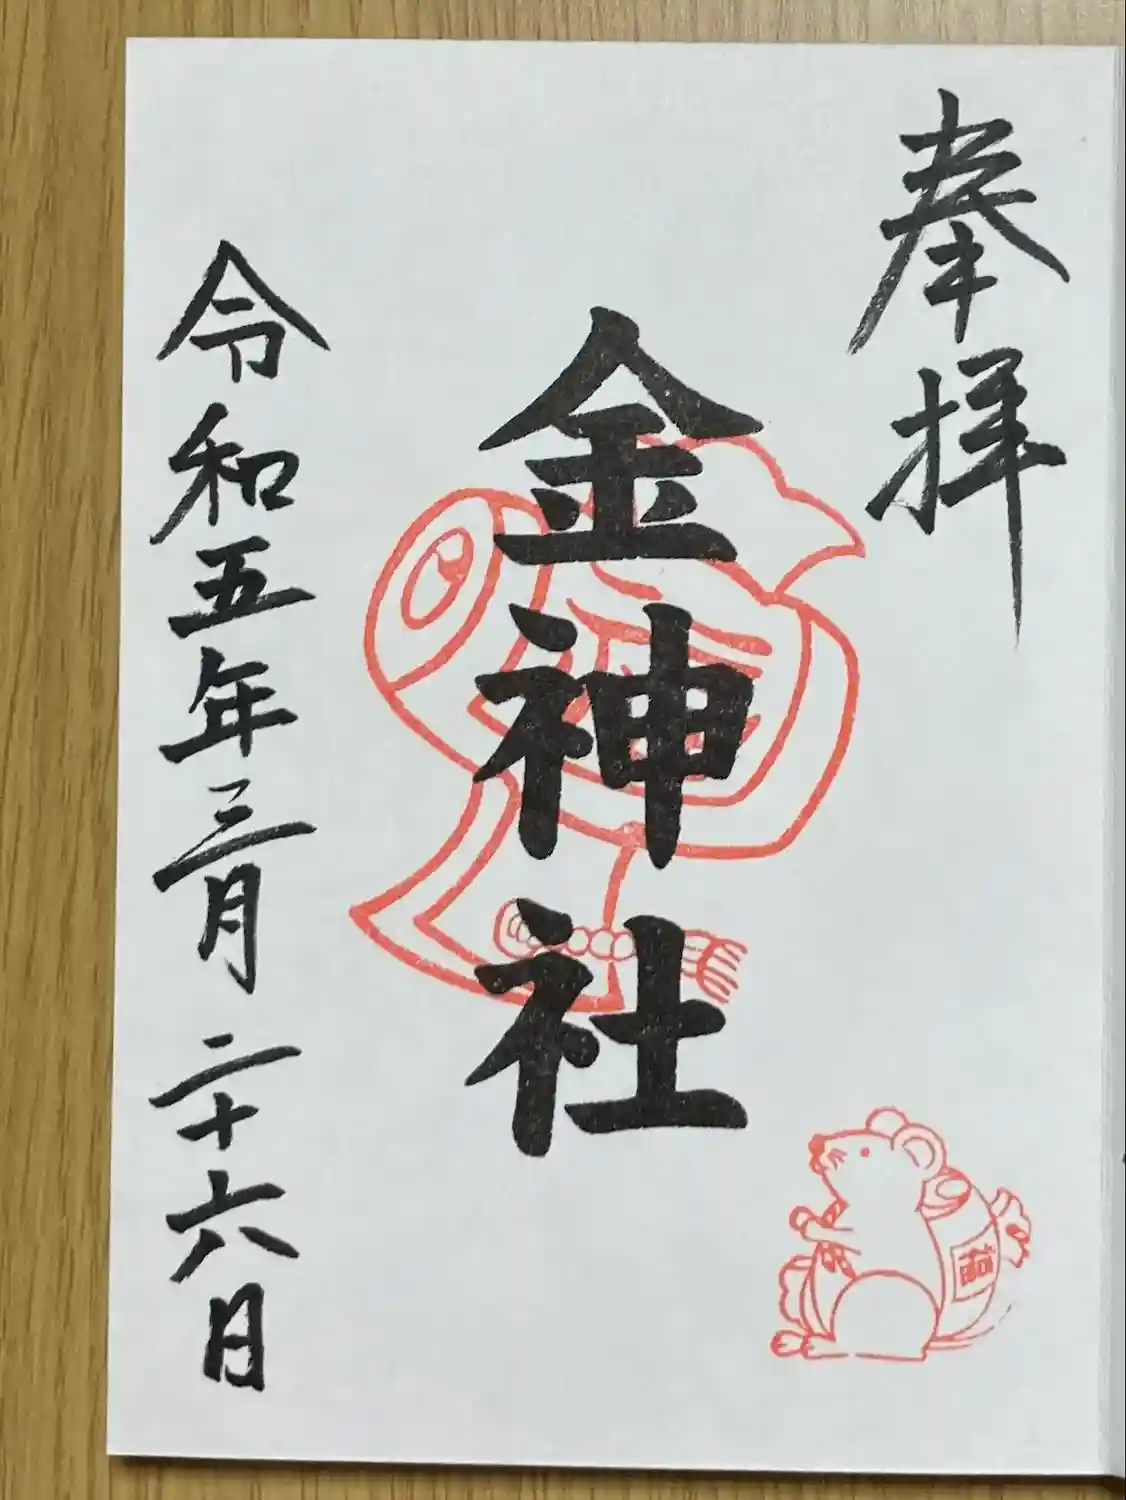 奉拝
金神社
令和五年三月二十六日
福